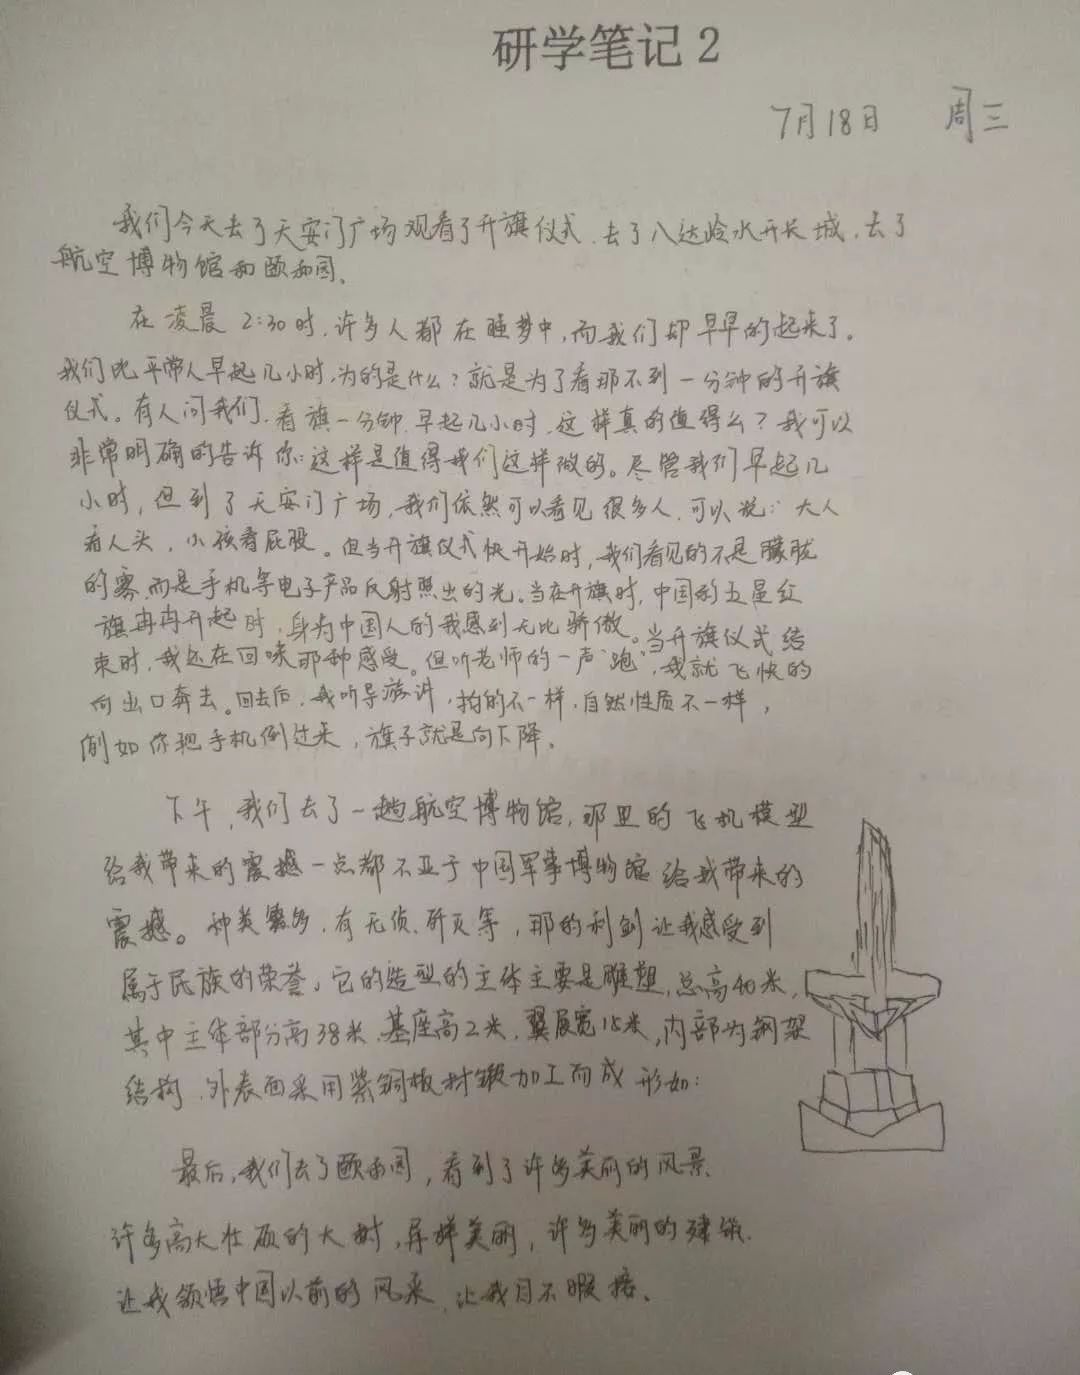 研学笔记2
7月18日 周三
我们今天去了天安门广场观看了升旗仪式.去了八达岭水开长城,去了
航空博物馆和颐和园.
在凌晨2:30时,许多人都在睡梦中,而我们却早早的起来了。
我们比平常人早起几小时,为的是什么?就是为了看那不到一分钟的升旗
仪式。有人问我们,看旗一分钟,早起几小时,这样真的值得么?我可以
非常明确的告诉你:这样是值得我们这样做的。尽管我们早起几
小时,但到了天安门广场,我们依然可以看见很多人,可以说:大人
看人头,小孩看屁股。但当升旗仪式快开始时,我们看见的不是朦胧
的雾,而是手机等电子产品反射照出的光。当在升旗时,中国的五星红
旗冉冉升起时,身为中国人的我感到无比骄傲。当升旗仪式结
束时,我还在回味那种感受。但听老师的一声"跑",我就飞快的
向出口奔去。回去后,我听导游讲,拍的不一样,自然性质不一样,
例如你把手机倒过来,旗子就是向下降。
下午,我们去了一趟航空博物馆,那里的飞机模型
给我带来的震撼一点都不亚于中国军事博物馆给我带来的
震撼。种类繁多,有无侦,歼灭等,那的利剑让我感受到
属于民族的荣誉,它的造型的主体主要是雕塑,总高40米,
其中主体部分高38米,基座高2米,翼展宽15米,内部为钢架
结构,外表面采用紫铜板材锻加工而成 形如:
最后,我们去了颐和园,看到了许多美丽的风景.
许多高大壮硕的大树,异样美丽,许多美丽的建筑.
让我领悟中国以前的风采,让我目不暇接.